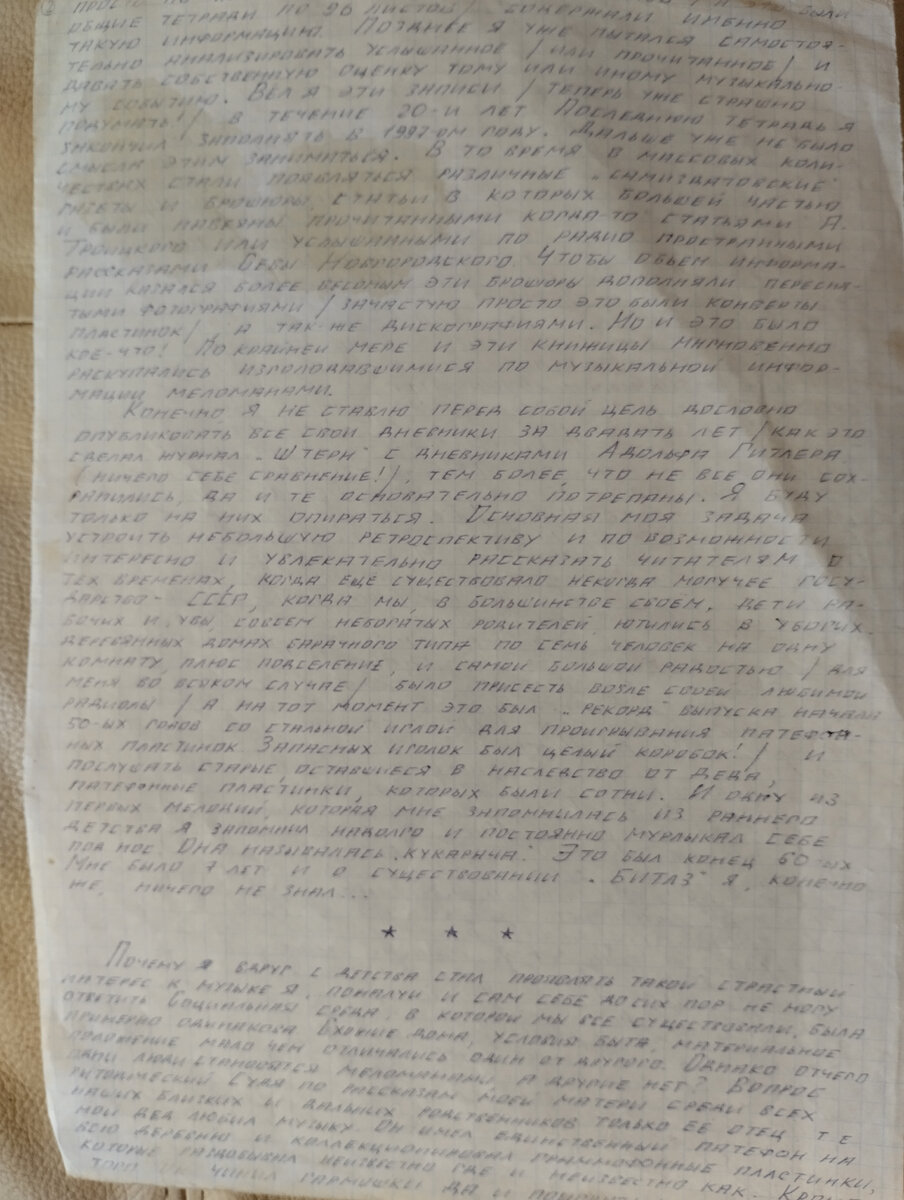 общие тетради по 96 листов/ содержали именно
такую информацию. Позднее я уже пытался самостоя-
тельно анализировать услышанное /или прочитанное/ и
давать собственную оценку тому или иному музыкально-
му событию. Вел я эти записи /теперь уже страшно
подумать!/ в течение 20-и лет Последнюю тетрадь я
закончил заполнять в 1997-ом году. Дальше уже не было
смысла этим заниматься. В то время в массовых коли-
чествах стали появляться различные „самиздатовские"
газеты и брошюры, статьи в которых большей частью
и были навеяны прочитанными когда-то статьями А.
Троицкого или услышанными по радио пространными
рассказами Севы Новгородского. Чтобы объем информа-
ции казался более весомым эти брошюры дополняли пересня-
тыми фотографиями /зачастую просто это были конверты
пластинок/, а так-же дискографиями. Но и это было
кое-что! По крайней мере и эти книжицы мгновенно
раскупались изголодавшимися по музыкальной инфор-
мации меломанами.
Конечно я не ставлю перед собой цель дословно
опубликовать все свои дневники за двадать лет /как это
сделал журнал „Штерн" с дневниками Адольфа Гитлера
(ничего себе сравнение!), тем более, что не все они сох-
ранились, да и те основательно потрепаны. Я буду
только на них опираться. Основная моя задача
устроить небольшую ретроспективу и по возможности
интересно и увлекательно рассказать читателям о
тех временах, когда еще существовало некогда могучее госу-
дарство - СССР, когда мы, в большинстве своем, дети ра-
бочих и, увы, совсем небогатых родителей, ютились в убогих
деревянных домах барачного типа по семь человек на одну
комнату плюс подселение, и самой большой радостью /для
меня во всяком случае/ было присесть возле своей любимой
радиолы /а на тот момент это был „Рекорд" выпуска начала
50-ых годов со стальной иглой для проигрывания патефон-
ных пластинок. Запасных иголок был целый коробок!/ и
послушать старые, оставшиеся в наследство от деда,
патефонные пластинки, которых были сотни. И одну из
первых мелодий, которая мне запомнилась из раннего
детства я запомнил надолго и постоянно мурлыкал себе
под нос. Она называлась „Кукарача". Это был конец 60-ых
Мне было 7 лет и о существовании „Битлз" я, конечно
же, ничего не знал...
★ ★ ★
Почему я вдруг с детства стал проявлять такой страстный
интерес к музыке я, пожалуй и сам себе до сих пор не могу
ответить Социальная среда, в которой мы все существовали, была
примерно одинакова. Схожие дома, условия быта, материальное
положение мало чем отличались один от другого. Однако отчего
одни люди становятся меломанами, а другие нет? Вопрос
риторический Судя по рассказам моей матери среди всех
наших близких и дальних родственников только ее отец, т.е
мой дед любил музыку. Он имел единственный патефон на
всю деревню и коллекционировал граммофонные пластинки,
которые раздобывал неизвестно где и неизвестно как.
того он чинил гармошки да и